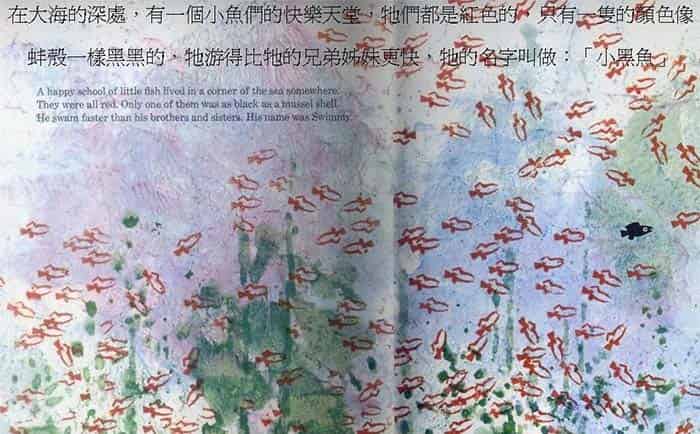 在大海的深處，有一個小魚們的快樂天堂，牠們都是紅色的，只有一隻的顏色像
蚌殼一樣黑黑的，牠游得比牠的兄弟姊妹更快，牠的名字叫做：「小黑魚」
A happy school of little fish lived in a corner of the sea somewhere.
They were all red. Only one of them was as black as a mussel shell.
He swam faster than his brothers and sisters. His name was Swimmy.